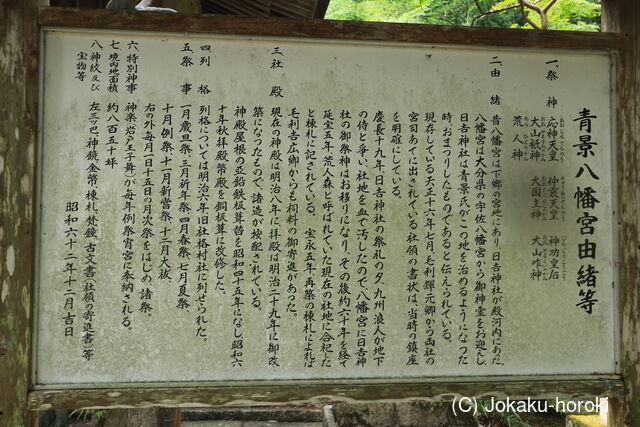 青景八幡宮由緒等
一．祭神 応神天皇 仲哀天皇 神功皇后
大山祇神 大国主神 大山咋神
荒人神
二．由緒 昔八幡宮は下郷の宮地にあり、日吉神社が殿河内にあった。
八幡宮は大分県の宇佐八幡宮から御神霊をお迎えし、
日吉神社は青景氏がこの地を治めるようになった
時、おまつりしたものであると伝えられている。
現存している天正十六年七月、毛利輝元卿から両社の
宮司あてに出されている社領の書状は、当時の鎮座
を明確にしている。
慶長十九年、日吉神社の祭礼の夕、九州浪人が地下
の侍と争い、社地を血で汚したので、八幡宮に日吉神
社の御祭神はお移りになり、その後約六十年を経て
延宝五年、荒人森と呼ばれていた現在の社地に合祀した
と棟札に記されている。宝永五年、再築の棟札によれば
毛利吉広卿からも祠料の御寄進があった。
三．社殿 現在の神殿は明治八年に拝殿は明治二十九年に御改
築になったもので、諸造が按配されている。
神殿屋根の亜鉛鉄板葺替を昭和四十五年になし昭和六
十年秋拝殿幣殿を銅板葺に改修した。
四．列格 列格については明治六年旧社格村社に列せられた。
五．祭事 一月歳旦祭、三月新年祭、四月春祭、七月夏祭、
十月例祭、十一月新嘗祭、十二月大祓
右の外毎月一日十五日の月次祭をはじめ、諸祭。
六．特別神事 神楽（岩戸王子舞）が毎年例祭宵宮に奉納される。
七．境内地面積 約八百五十坪
八．神紋及び宝物等 左三ツ巴、神鏡、金幣、棟札、梵鐘、古文書（社領の寄進書）等
昭和六十二年十二月吉日
(C) Jokaku-horoki